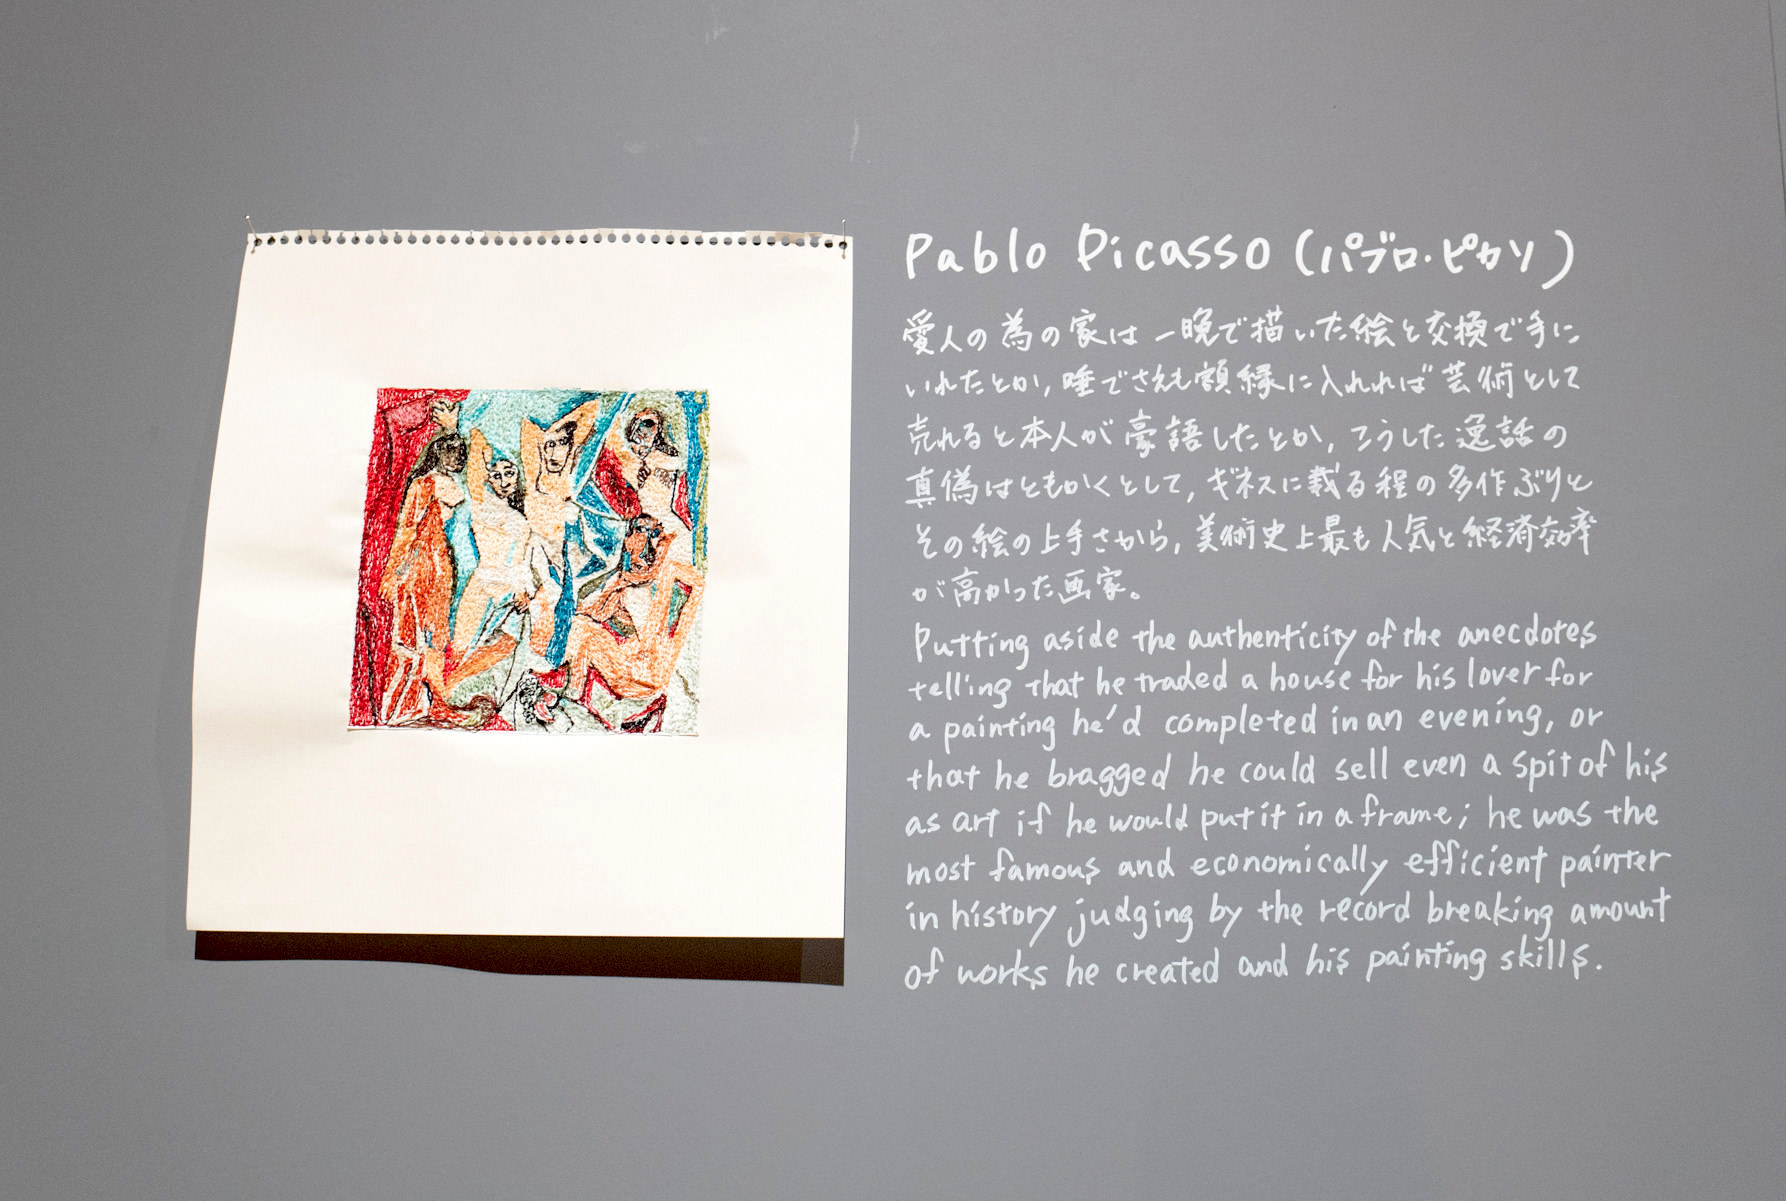 Pablo Picasso (パブロ・ピカソ)
愛人の為の家は一晩で描いた絵と交換で手に
いれたとか,唾でさえも額縁に入れれば芸術として
売れると本人が豪語したとか,こうした逸話の
真偽はともかくとして,ギネスに載る程の多作ぶりと
その絵の上手さから,美術史上最も人気と経済効率
が高かった画家。
Putting aside the authenticity of the anecdotes
telling that he traded a house for his lover for
a painting he'd completed in an evening, or
that he bragged he could sell even a spit of his
as art if he would put it in a frame; he was the
most famous and economically efficient painter
in history judging by the record breaking amount
of works he created and his painting skills.